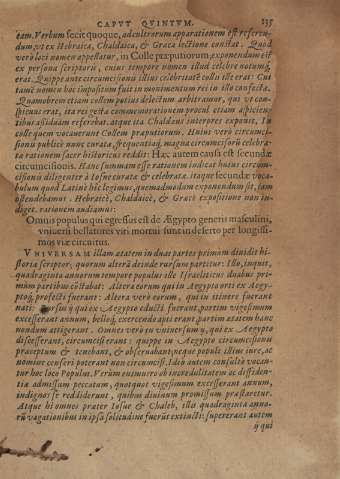 CAPVT QVINTVM. 135
eam. Verbum fecit quoque, ad cultrorum apparationem est referen-
dum, vt ex Hebraica, Chaldaica, & Græca lectione constat. Quod
verò loci nomen appellatur, in Colle præputiorum, exponendum est
ex persona scriptoris, cuius tempore nomen illud celebre notumq́;
erat. Quippe ante circumcisionis illius celebritatē collis ille erat: Cui
tamē nomen hoc impositum fuit in monimentum rei in illo confecta.
Quamobrem etiam collem potius delectum arbitramor, qui vt con-
spicuus erat, ita rei gesta commemorationem procul etiam aspicien-
tibus assiduam referebat. atque ita Chaldæus interpres exposuit, In
colle quem vocauerunt Collem præputiorum. Huius verò circumci-
sionis publicè nunc curata, frequentiaq́; magna circumcisorū celebra-
ta rationem sacer historicus reddit: Hæc autem causa est secundæ
circumcisionis. Hanc summam esse rationem indicat huius circum-
cisionis diligenter à Iosue curata & celebrata. itaque secundæ voca-
bulum quod Latinè hîc legimus, quemadmodum exponendum sit, iam
ostendebamus. Hebraicè, Chaldaicè, & Græcè expositione non in-
diget. rationem audiamus:
Omnis populus qui egressus est de Ægypto generis masculini,
vniuersi bellatores viri mortui sunt in deserto per longissi-
mos viæ circuitus.
VNIVERSAM illam ætatem in duas partes primùm diuidit hi-
storiæ scriptor, quorum alterā deinde rursum partitur: Illo, inquit,
quadraginta annorum tempore populus ille Israeliticus duabus pri-
mùm partibus cōstabat: Altera eorum qui in Aegypto orti ex Aegy-
ptoq́; profecti fuerant: Altera verò eorum, qui in itinere fuerant
nati: rursus ij qui ex Aegypto educti fuerant, partim vigesimum
excesserant annum, belloq́; exercendo apti erant, partim ætatem hanc
nondum attigerant. Omnes verò in vniuersum ij, qui ex Aegypto
discesserant, circumcisi erant: quippe in Aegypto circumcisionis
præceptum & tenebant, & obseruabant; neque populi illius iure, ac
nomine censeri poterant non circumcisi. Ideò autem consultò voca-
tur hoc loco Populus. Verùm enimuero ob incredulitatem ac diffiden-
tiæ admissum peccatum, quotquot vigesimum excesserant annum,
indignos se reddiderunt, quibus diuinum promissum præstaretur.
Atque hi omnes præter Iosue & Chaleb, illis quadraginta anno-
rū vagationibus in ipsa solitudine fuerūt extincti: supererant autem
ij qui